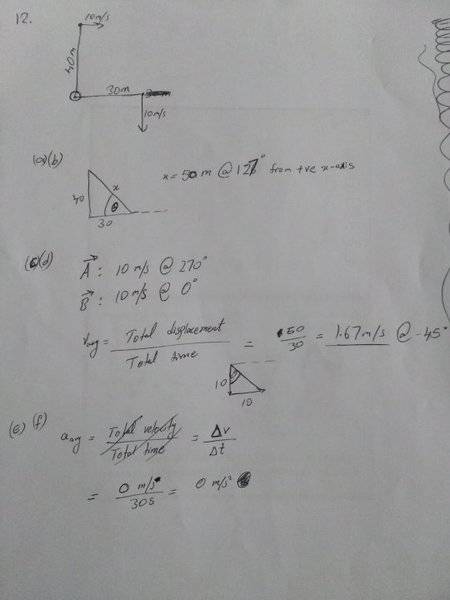 12.
10 m/s
40m
30m
10 m/s
(a)(b)
40
x
θ
30
x = 50 m @ 127° from +ve x-axis
(c)(d)
A⃗ : 10 m/s @ 270°
B⃗ : 10 m/s @ 0°
Vavg = Total displacement / Total time = 50/30 = 1.67 m/s @ -45°
10
10
(e) (f)
aavg = Total velocity / Total time = Δv / Δt
= 0 m/s / 30s = 0 m/s²